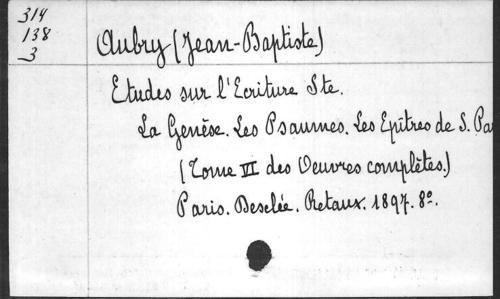 314
138
3
Aubry (Jean-Baptiste)
Etudes sur l'Ecriture Ste.
La Genèse. Les Psaumes. Les Epîtres de S. Pa
(Tome VI des Oeuvres complètes.)
Paris. Desclée. Retaux. 1897. 8º.